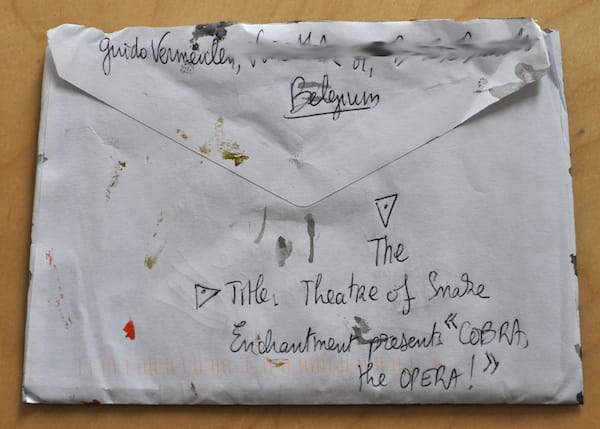 Guido Vermeulen,
Belgium
The
Title, Theatre of Snake
Enchantment presents "COBRA,
the OPERA! »